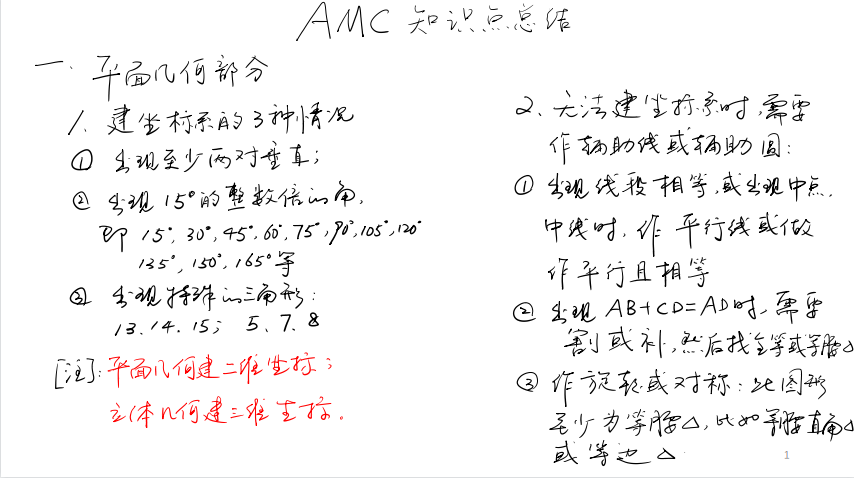 AMC 知识点总结
一. 平面几何部分
1、建坐标系的3种情况
① 出现至少两对垂直;
② 出现15°的整数倍的角,
即 15°, 30°, 45°, 60°, 75°, 90°, 105°, 120°
135°, 150°, 165° 等
③ 出现特殊的三角形:
13. 14. 15; 5、7、8
[注]: 平面几何建二维坐标;
立体几何建三维坐标.
2、无法建坐标系时, 需要
作辅助线或辅助圆:
① 出现线段相等, 或出现中点.
中线时, 作 平行线或做
作平行且相等
② 出现 AB+CD=AD时, 需要
割或补, 然后找全等或等腰△
③ 作旋转或对称: 此图形
至少为等腰△, 比如等腰直角△
或等边△
1